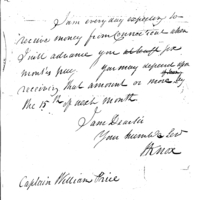 I am every day expecting to
receive money from Connecticut when
I will advance you for
months pay You may depend upon
receiving that amount or more by
the 15th of each month
I am Dear Sir
Your humble Ser
H Knox
Captain William Price